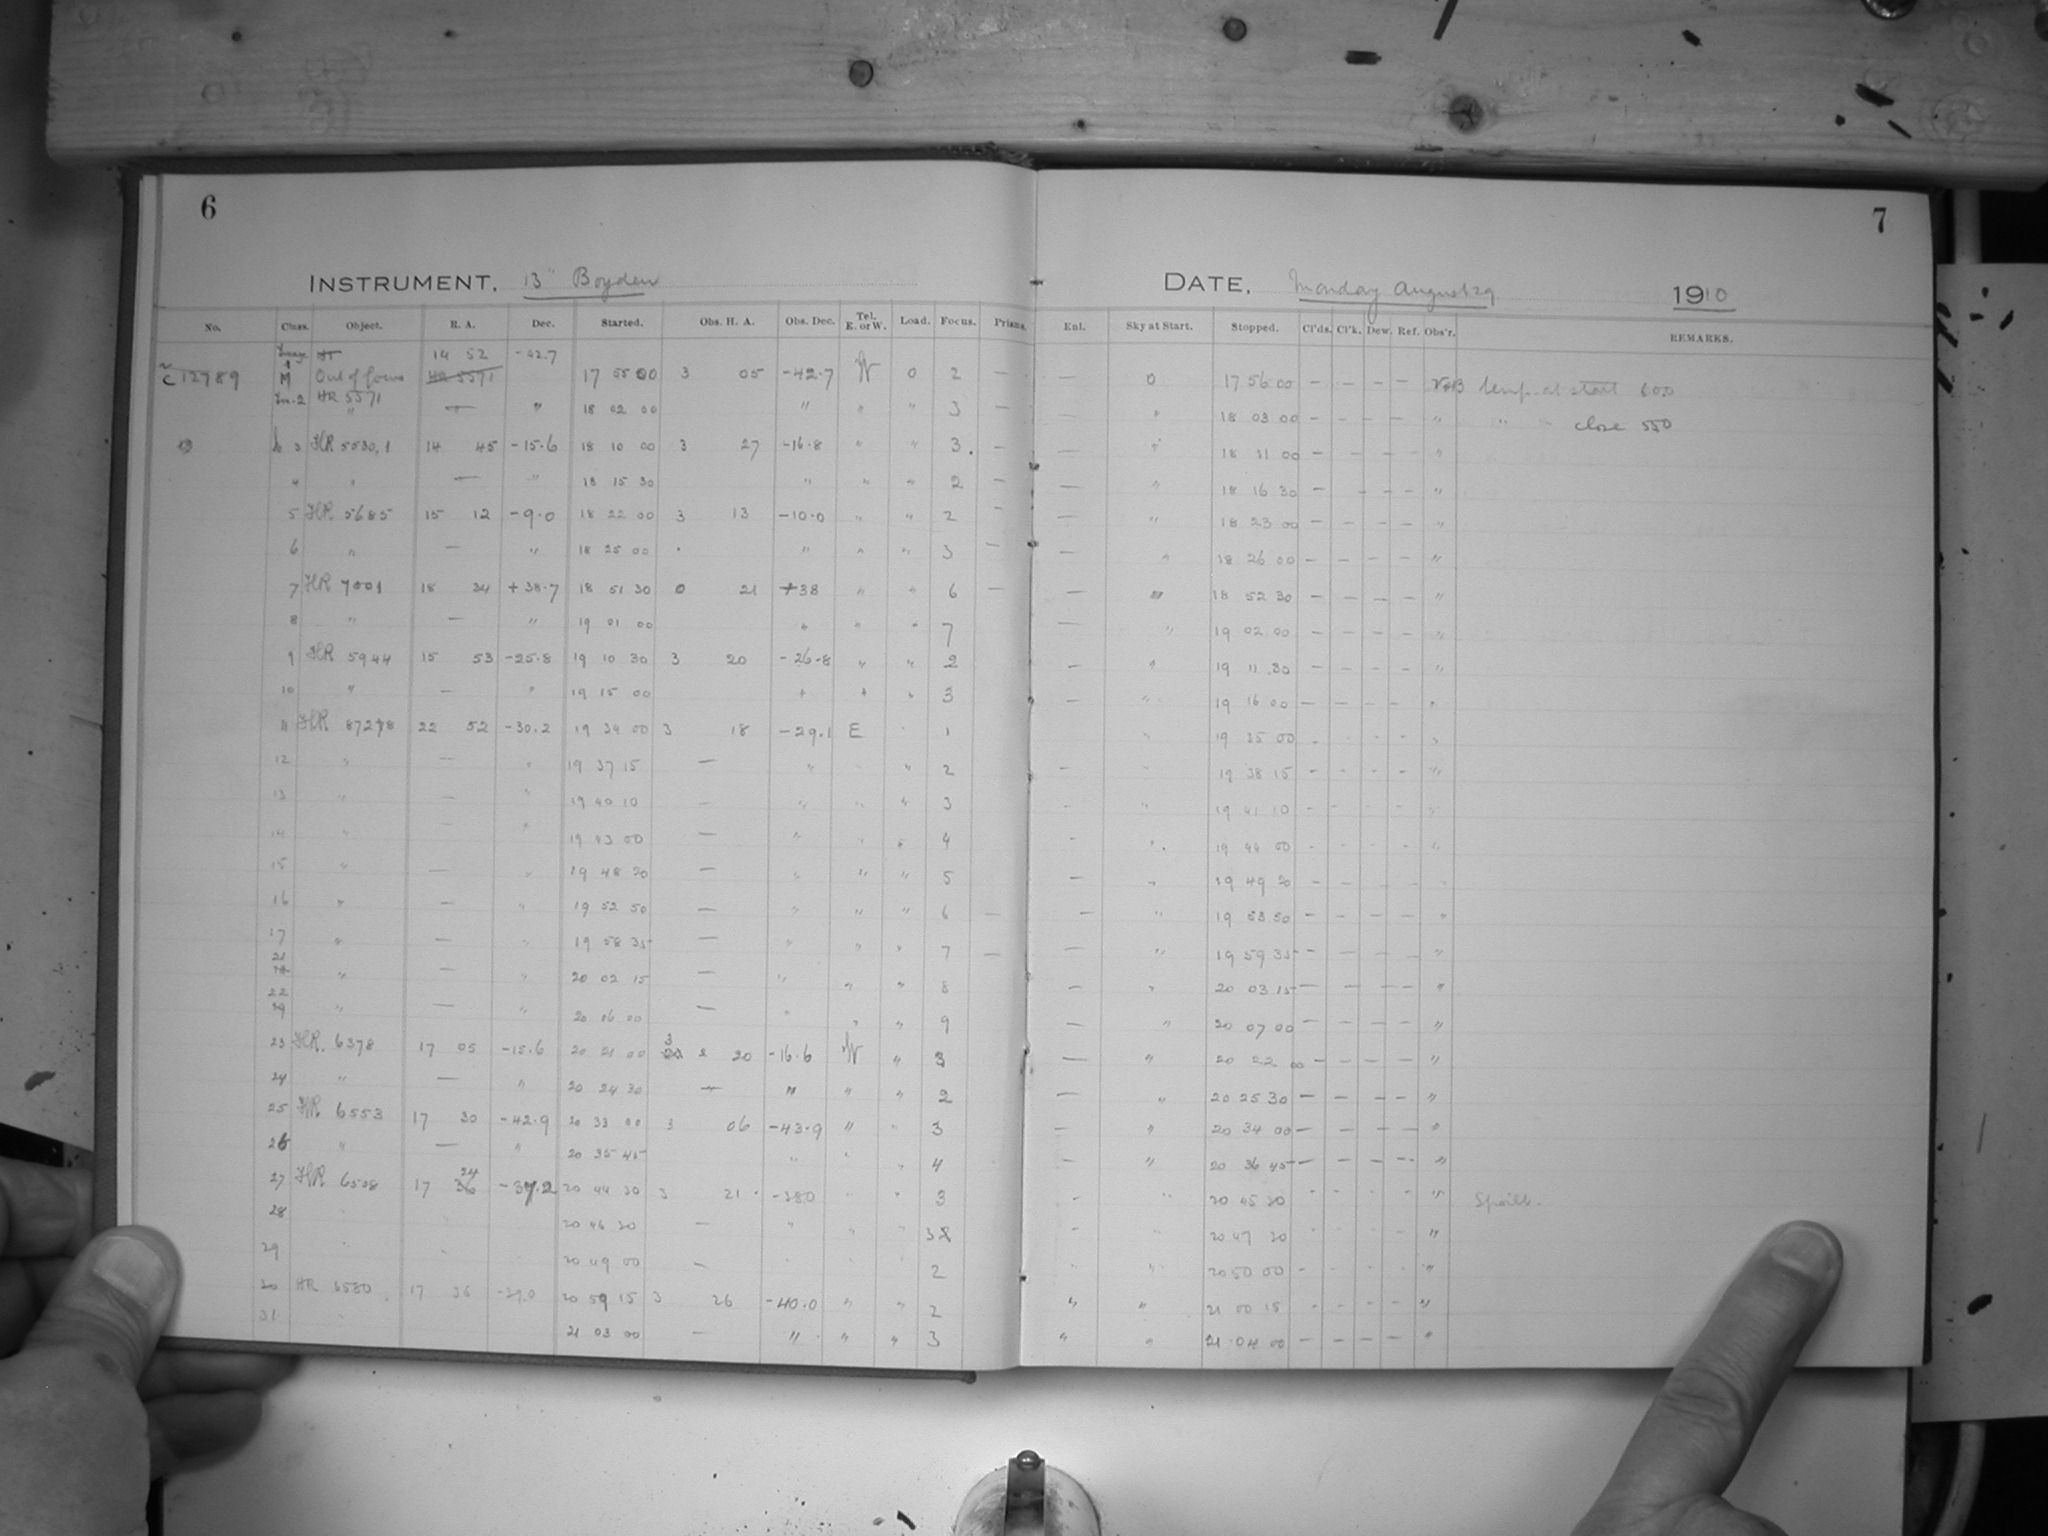 6
7
INSTRUMENT. 13" Boyden
DATE. Monday August 29 1910
No. Class. Object. R. A. Dec. Started. Obs. H. A. Obs. Dec. Tel. E. or W. Load. Focus. Prisms. Enl. Sky at Start. Stopped. Cl'ds. Cl'k. Dew. Ref. Obs'r. REMARKS.
Image 14 52 -42.7
C 12789 M Out of focus HR 5571 17 55 00 3 05 -42.7 W 0 2 — — 0 17 56 00 — — — — temp. at start 60.0
Im. 2 HR 5571 " — " 18 02 00 " " " 3 — — " 18 03 00 — — — — " " " close 55.0
3 HR 5530,1 14 45 -15.6 18 10 00 3 27 -16.8 " " 3. — — " 18 11 00 — — — — "
4 " — " 18 15 30 " " " 2 — — " 18 16 30 — — — — "
5 HR 5685 15 12 -9.0 18 22 00 3 13 -10.0 " " 2 — — " 18 23 00 — — — — "
6 " — " 18 25 00 " " " 3 — — " 18 26 00 — — — — "
7 HR 7001 18 34 +38.7 18 51 30 0 21 +38 " " 6 — — " 18 52 30 — — — — "
8 " — " 19 01 00 " " " 7 — " 19 02 00 — — — — "
9 HR 5944 15 53 -25.8 19 10 30 3 20 -26.8 " " 2 — " 19 11 30 — — — — "
10 " — " 19 15 00 " " " 3 — " 19 16 00 — — — — "
11 HR 22 52 -30.2 19 34 00 3 18 -29.1 E " 1 " 19 35 00 - - - - "
12 " — " 19 37 15 — " " 2 — 19 38 15 - - - - "
13 " — " 19 40 10 — " " " 3 — " 19 41 10 - - - - "
14 " — " 19 43 00 — " " 4 - " 19 44 00 - - - - "
15 " — " 19 48 20 — " " " 5 — " 19 49 20 - - - -
16 " — " 19 52 50 — " " " 6 — — " 19 53 50 — — — — "
17 " — " 19 58 35 — " " " 7 — — " 19 59 35 — — — — "
21 " — " 20 02 15 — " " " 8 — " 20 03 15 — — — — "
22 " — " 20 06 00 — " " " 9 — " 20 07 00 — — — — "
23 HR. 6378 17 05 -15.6 20 21 00 3 20 -16.6 W " 3 — " 20 22 00 — — — — "
24 " — " 20 24 30 — " " " 2 — " 20 25 30 — — — — "
25 HR 6553 17 30 -42.9 20 33 00 3 06 -43.9 " " 3 — " 20 34 00 — — — — "
26 " — " 20 35 45 " " " 4 — " 20 36 45 — — — — "
27 HR 6508 17 24 -37.2 20 44 30 3 21 -38.0 " " 3 - " 20 45 30 - - - - " Spoilt.
28 20 46 30 — " " " 3 - " 20 47 30 - - - - "
29 20 49 00 — 2 " 20 50 00 - - - - "
30 HR 6580 17 36 -39.0 20 59 15 3 26 -40.0 " " 2 " " 21 00 15 - - - - "
31 21 03 00 — " " " 3 " " 21 04 00 — — — — "